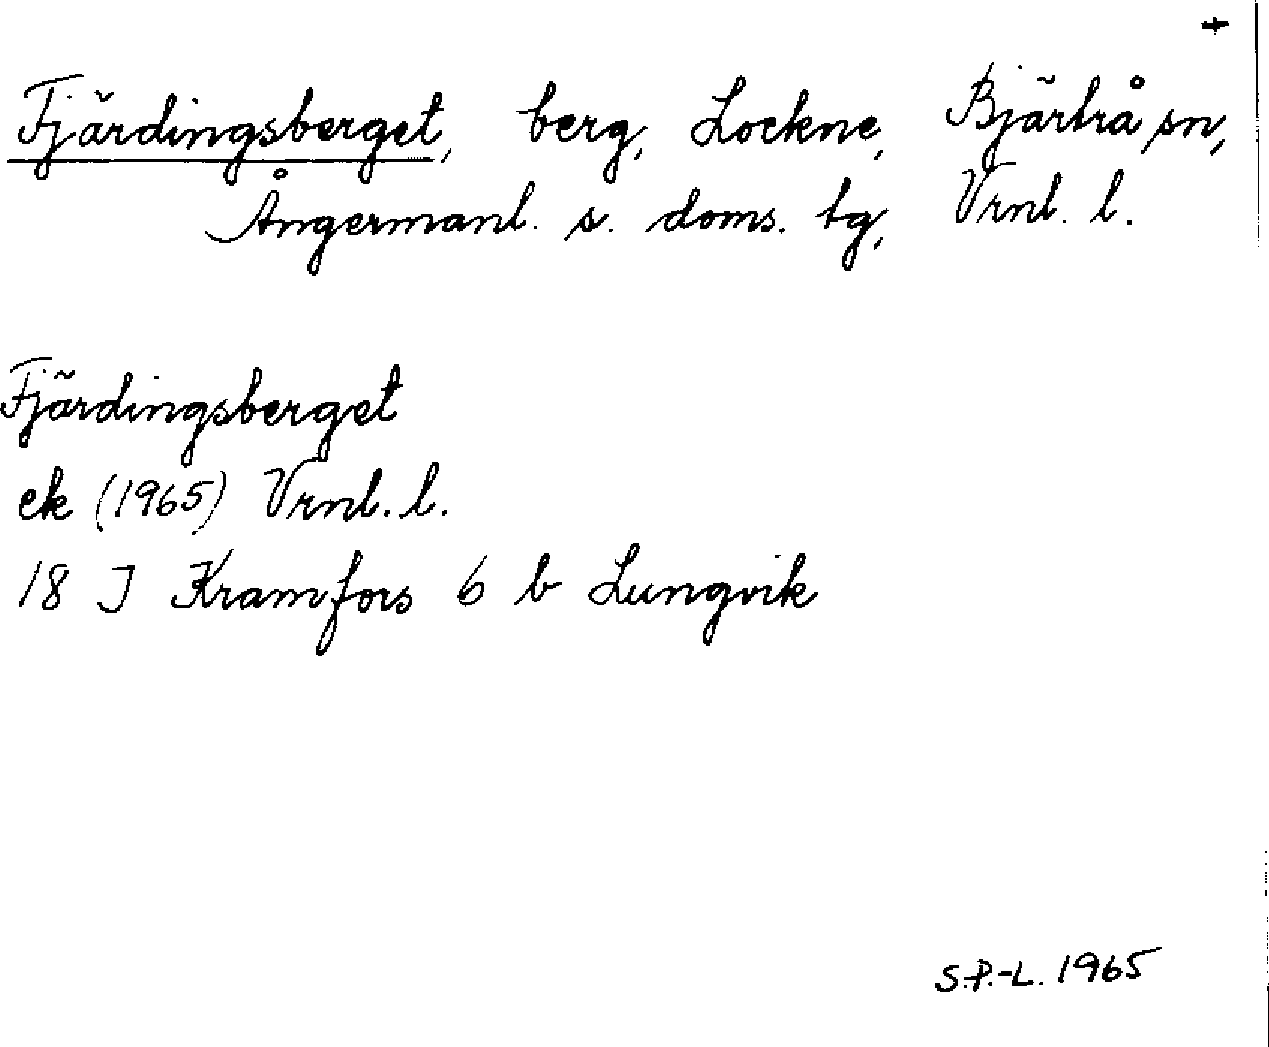 +
Fjärdingsberget, berg, Lockne, Bjärtrå sn,
Ångermanl. s. doms. tg, Vrnl. l.
Fjärdingsberget
ek (1965) Vrnl. l.
18 J Kramfors 6 b Lungvik
S.P.-L. 1965